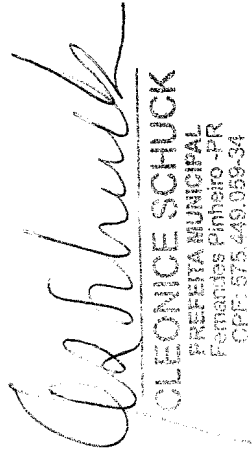 CSchuck
CLEONICE SCHUCK
PREFEITA MUNICIPAL
Fernandes Pinheiro -PR
CPF: 575.449.059-34